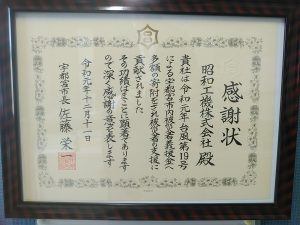 感謝状
昭和工機株式会社 殿
貴社は令和元年台風第19号
による宇都宮市内被災者義援金へ
多額の寄附をされ被災者の支援に
貢献されました
その功績はまことに顕著であります
ので深く感謝の意を表します
令和元年十二月十一日
宇都宮市長 佐藤栄一